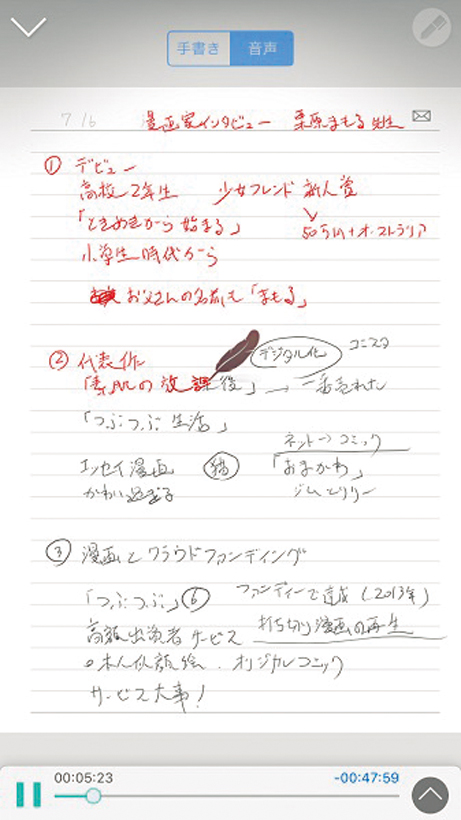 手書き 音声
7 16 漫画家インタビュー 栗原まもる先生
① デビュー
高校2年生 少女フレンド 新人賞
「ときめきから始まる」 50万円+オーストラリア
小学生時代から
お父さんの名前も「まもる」
② 代表作 デジタル化 コミスタ
「素肌の放課後」→一番売れた
「つぶつぶ生活」
ネット→コミック
エッセイ漫画 猫 「おまかわ」
かわい過ぎる ジムとリリー
③ 漫画とクラウドファンディング
「つぶつぶ」⑥ ファンディーで達成(2013年)
高額出資者サービス 打ち切り漫画の再生
○本人似顔絵.オリジナルコミック
サービス大事!
00:05:23 -00:47:59